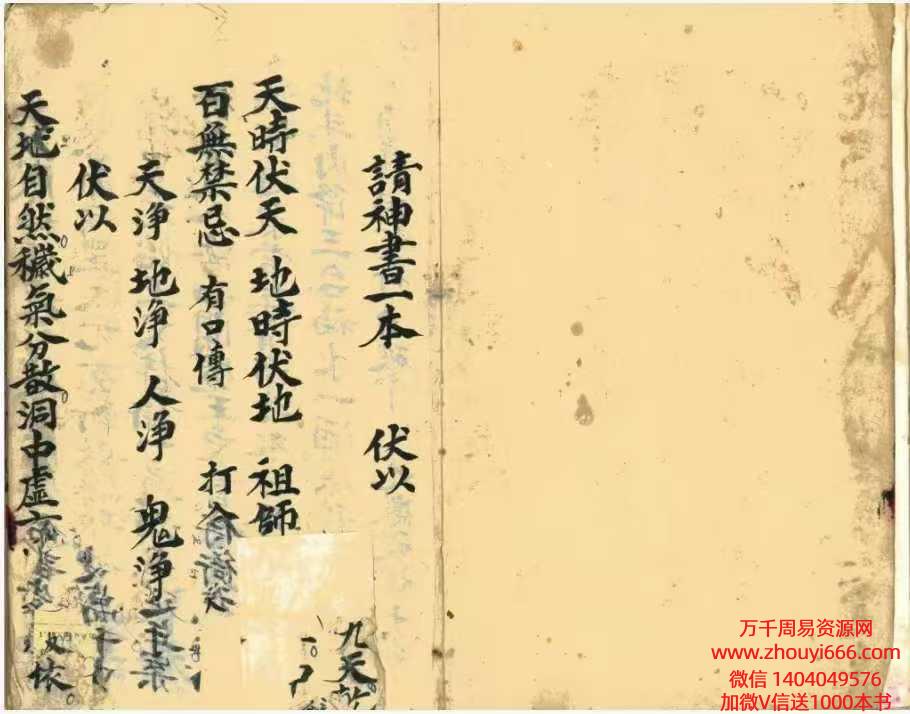 請神書一本 伏以
九天
天時伏天 地時伏地 祖師
百無禁忌 有口傳 打
天淨 地淨 人淨 鬼淨
伏以
天地自然穢氣分散洞中虛
依
万千周易资源网
www.zhouyi666.com
微信 1404049576
加微V信送1000本书